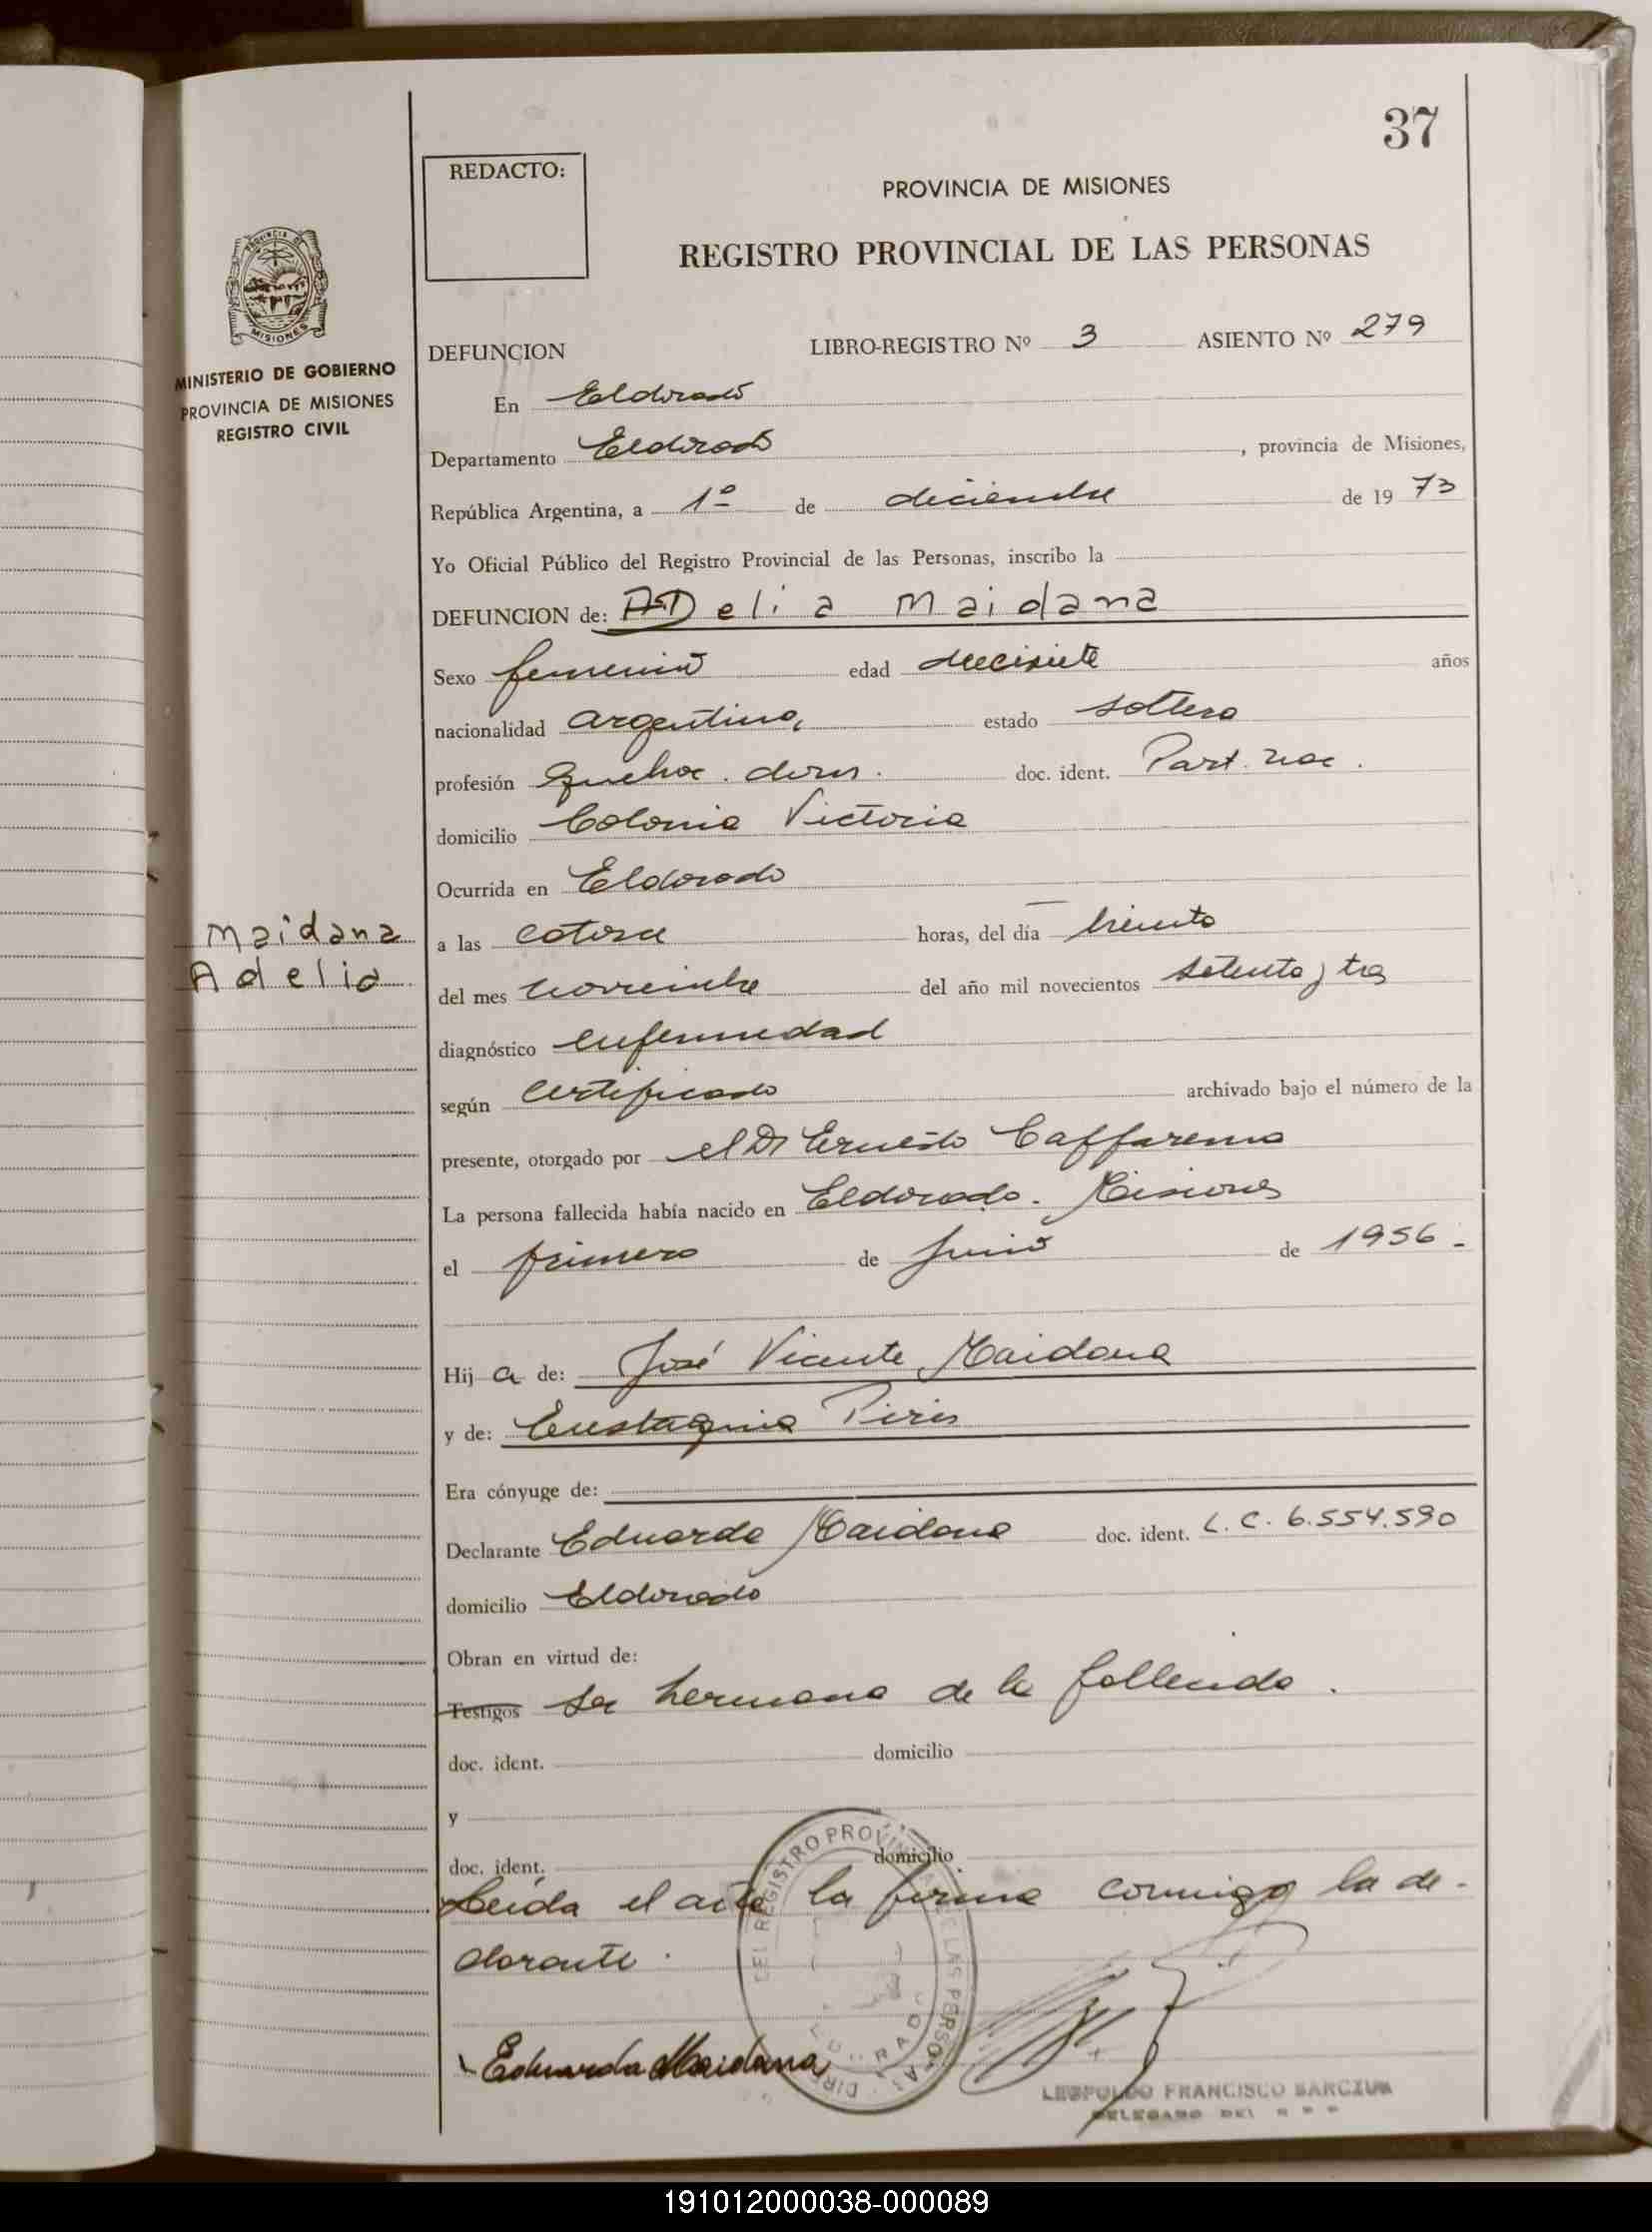 37
REDACTO:
PROVINCIA DE MISIONES
REGISTRO PROVINCIAL DE LAS PERSONAS
PROVINCIA DE
MISIONES
MINISTERIO DE GOBIERNO
PROVINCIA DE MISIONES
REGISTRO CIVIL
DEFUNCION LIBRO-REGISTRO Nº 3 ASIENTO Nº 279
En Eldorado
Departamento Eldorado, provincia de Misiones,
República Argentina, a 1º de diciembre de 19 73
Yo Oficial Público del Registro Provincial de las Personas, inscribo la
DEFUNCION de: ADelia Maidana
Sexo femenino edad diecisiete años
nacionalidad argentina, estado soltera
profesión Quehac. dom. doc. ident. Part. nac.
domicilio Colonia Victoria
Ocurrida en Eldorado
a las catorce horas, del día treinta
Maidana
Adelia
del mes noviembre del año mil novecientos setenta y tres
diagnóstico enfermedad
según certificado archivado bajo el número de la
presente, otorgado por el Dr Ernesto Caffarena
La persona fallecida había nacido en Eldorado. Misiones
el primero de junio de 1956.-
Hij a de: José Vicente Maidana
y de: Eustaquia Piris
Era cónyuge de:
Declarante Eduarda Maidana doc. ident. L. C. 6.554.590
domicilio Eldorado
Obran en virtud de:
Testigos ser hermana de la fallecida.
doc. ident. domicilio
y
doc. ident. domicilio
Leida el acta la firma conmigo la de-
clarante.
DEL REGISTRO PROVINCIAL DE LAS PERSONAS
Eduarda Maidana
LEOPOLDO FRANCISCO
DELEGADO DEL R P P
191012000038-000089